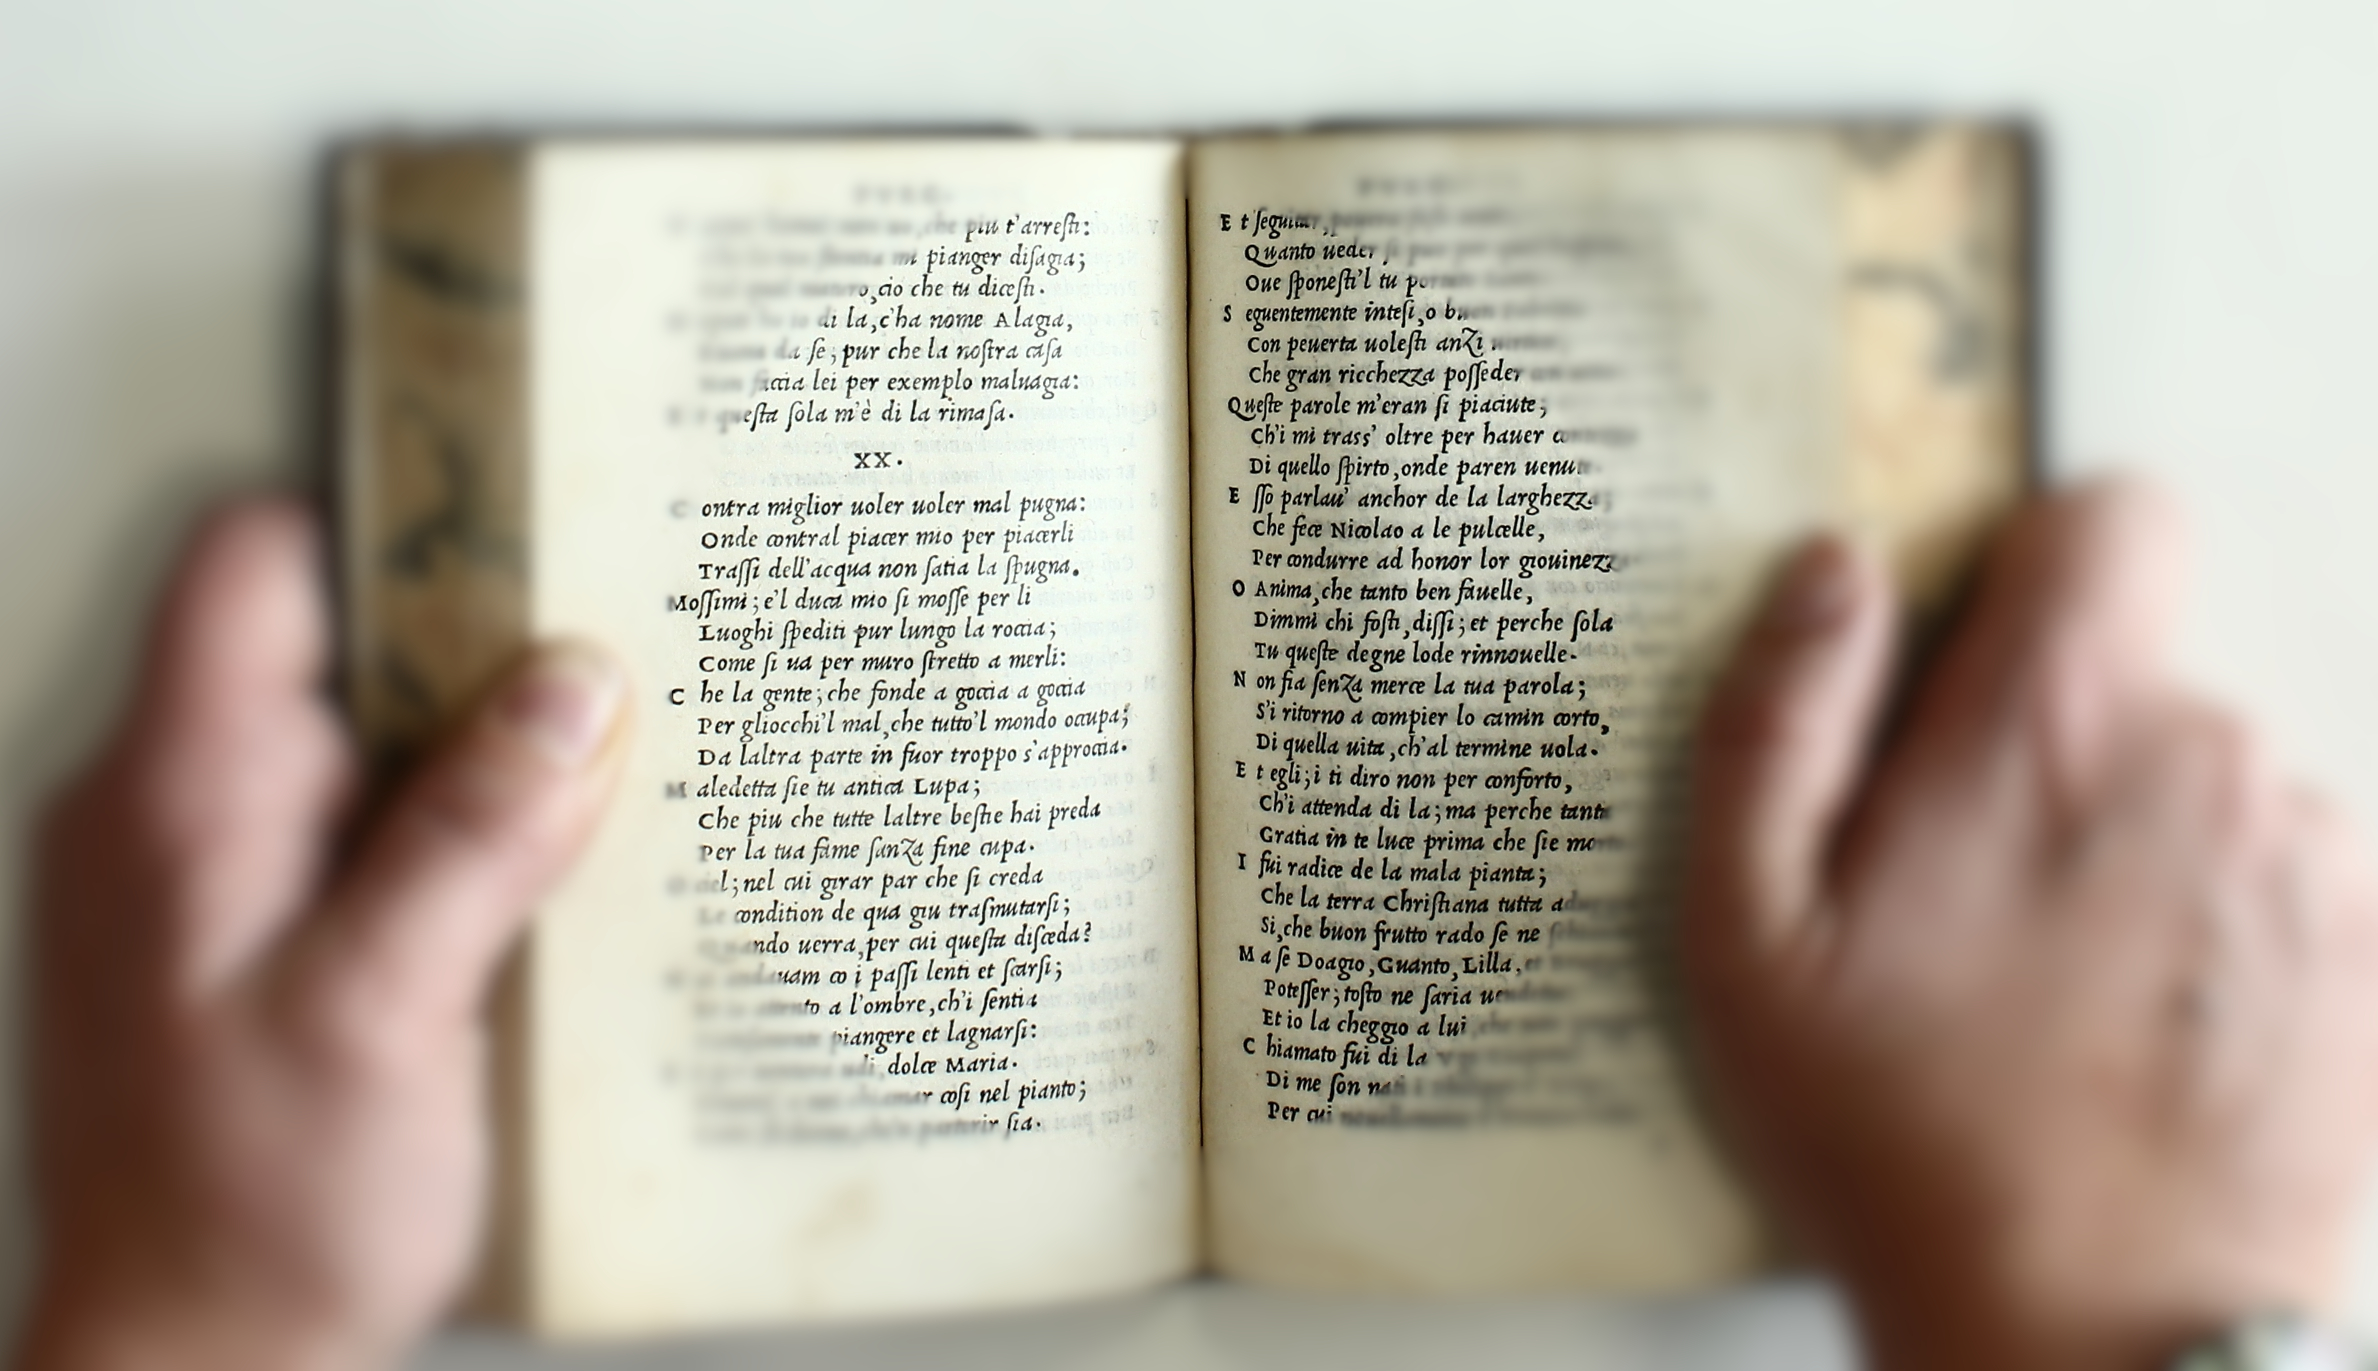 piu t'arresti:
pianger disagia;
cio che tu dicesti.
di la, c'ha nome Alagia,
da se; pur che la nostra casa
faccia lei per exemplo maluagia:
questa sola m'è di la rimasa.
XX.
Contra miglior uoler uoler mal pugna:
Onde contral piacer mio per piacerli
Trassi dell'acqua non satia la spugna.
Mossimi; e'l duca mio si mosse per li
Luoghi spediti pur lungo la roccia;
Come si ua per muro stretto a merli:
Che la gente; che fonde a goccia a goccia
Per gliocchi'l mal, che tutto'l mondo occupa;
Da laltra parte in fuor troppo s'approccia.
Maledetta sie tu antica Lupa;
Che piu che tutte laltre bestie hai preda
Per la tua fame sanza fine cupa.
O ciel; nel cui girar par che si creda
Le condition de qua giu trasmutarsi;
Quando uerra, per cui questa disceda?
andauam co i passi lenti et scarsi;
attento a l'ombre, ch'i sentia
piangere et lagnarsi:
udi, dolce Maria.
chiamar cosi nel pianto;
parturir sia.
Et seguitar,
Quanto ueder
Oue sponesti'l tu
Seguentemente intesi, o
Con peuerta uolesti anzi
Che gran ricchezza posseder
Queste parole m'eran si piaciute;
Ch'i mi trass' oltre per hauer
Di quello spirto, onde paren uenute.
Esso parlau' anchor de la larghezza;
Che fece Nicolao a le pulcelle,
Per condurre ad honor lor giouinezza
O Anima, che tanto ben fauelle,
Dimmi chi fosti, dissi; et perche sola
Tu queste degne lode rinnouelle.
Non fia senza merce la tua parola;
S'i ritorno a compier lo camin corto,
Di quella uita, ch'al termine uola.
Et egli; i ti diro non per conforto,
Ch'i attenda di la; ma perche tanta
Gratia in te luce prima che sie
I fui radice de la mala pianta;
Che la terra Christiana tutta
Si, che buon frutto rado se ne
Ma se Doagio, Guanto, Lilla, et
Potesser; tosto ne saria
Et io la cheggio a lui
Chiamato fui di la
Di me son nati
Per cui